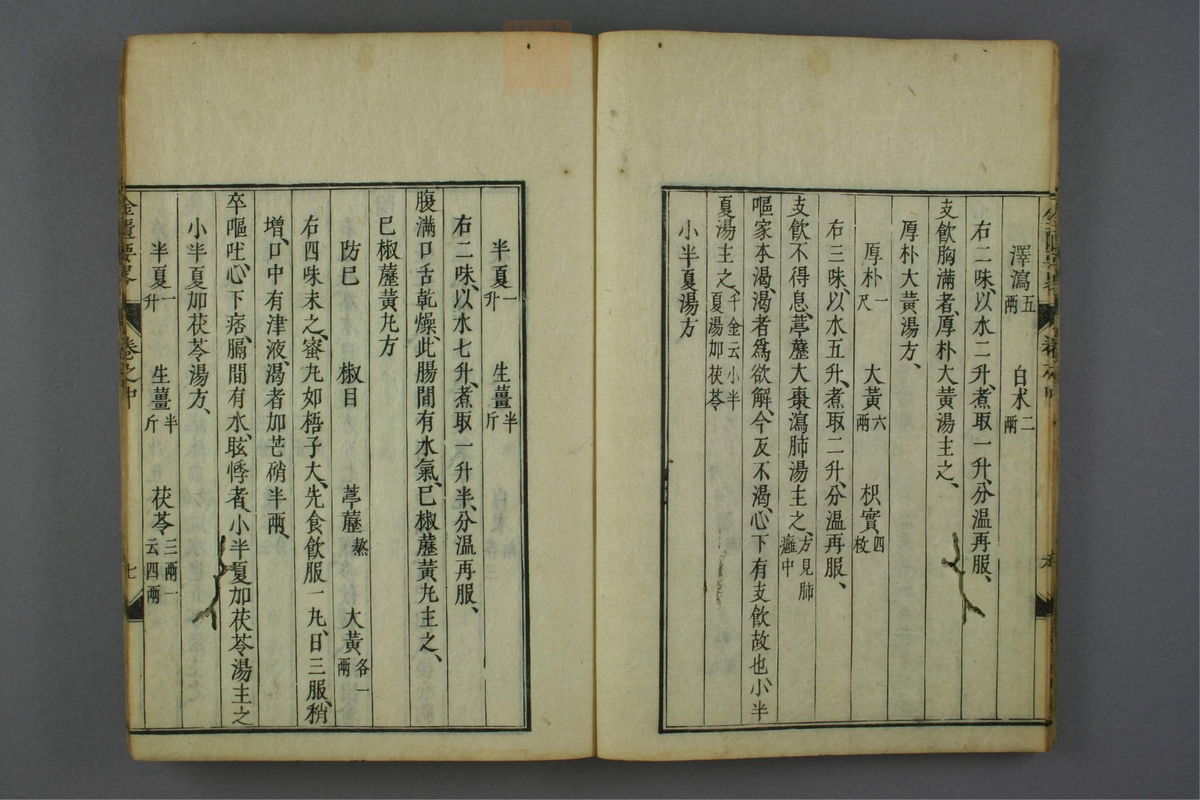 澤瀉五兩　白朮二兩
右二味、以水二升、煮取一升、分溫再服、
支飲胸滿者、厚朴大黃湯主之、
厚朴大黃湯方、
厚朴一尺　大黃六兩　枳實四枚
右三味、以水五升、煮取二升、分溫再服、
支飲不得息、葶藶大棗瀉肺湯主之、方見肺癰中
嘔家本渴、渴者為欲解、今反不渴、心下有支飲故也、小半
夏湯主之、千金云小半夏湯加茯苓
小半夏湯方
半夏一升　生薑半斤
右二味、以水七升、煮取一升半、分溫再服、
腹滿口舌乾燥、此腸間有水氣、已椒藶黃丸主之、
已椒藶黃丸方
防已　椒目　葶藶熬　大黃各一兩
右四味末之、蜜丸如梧子大、先食飲服一丸、日三服、稍
增、口中有津液、渴者加芒硝半兩、
卒嘔吐、心下痞、膈間有水、眩悸者、小半夏加茯苓湯主之
小半夏加茯苓湯方、
半夏一升　生薑半斤　茯苓三兩一云四兩
金匱要略　卷之中　七